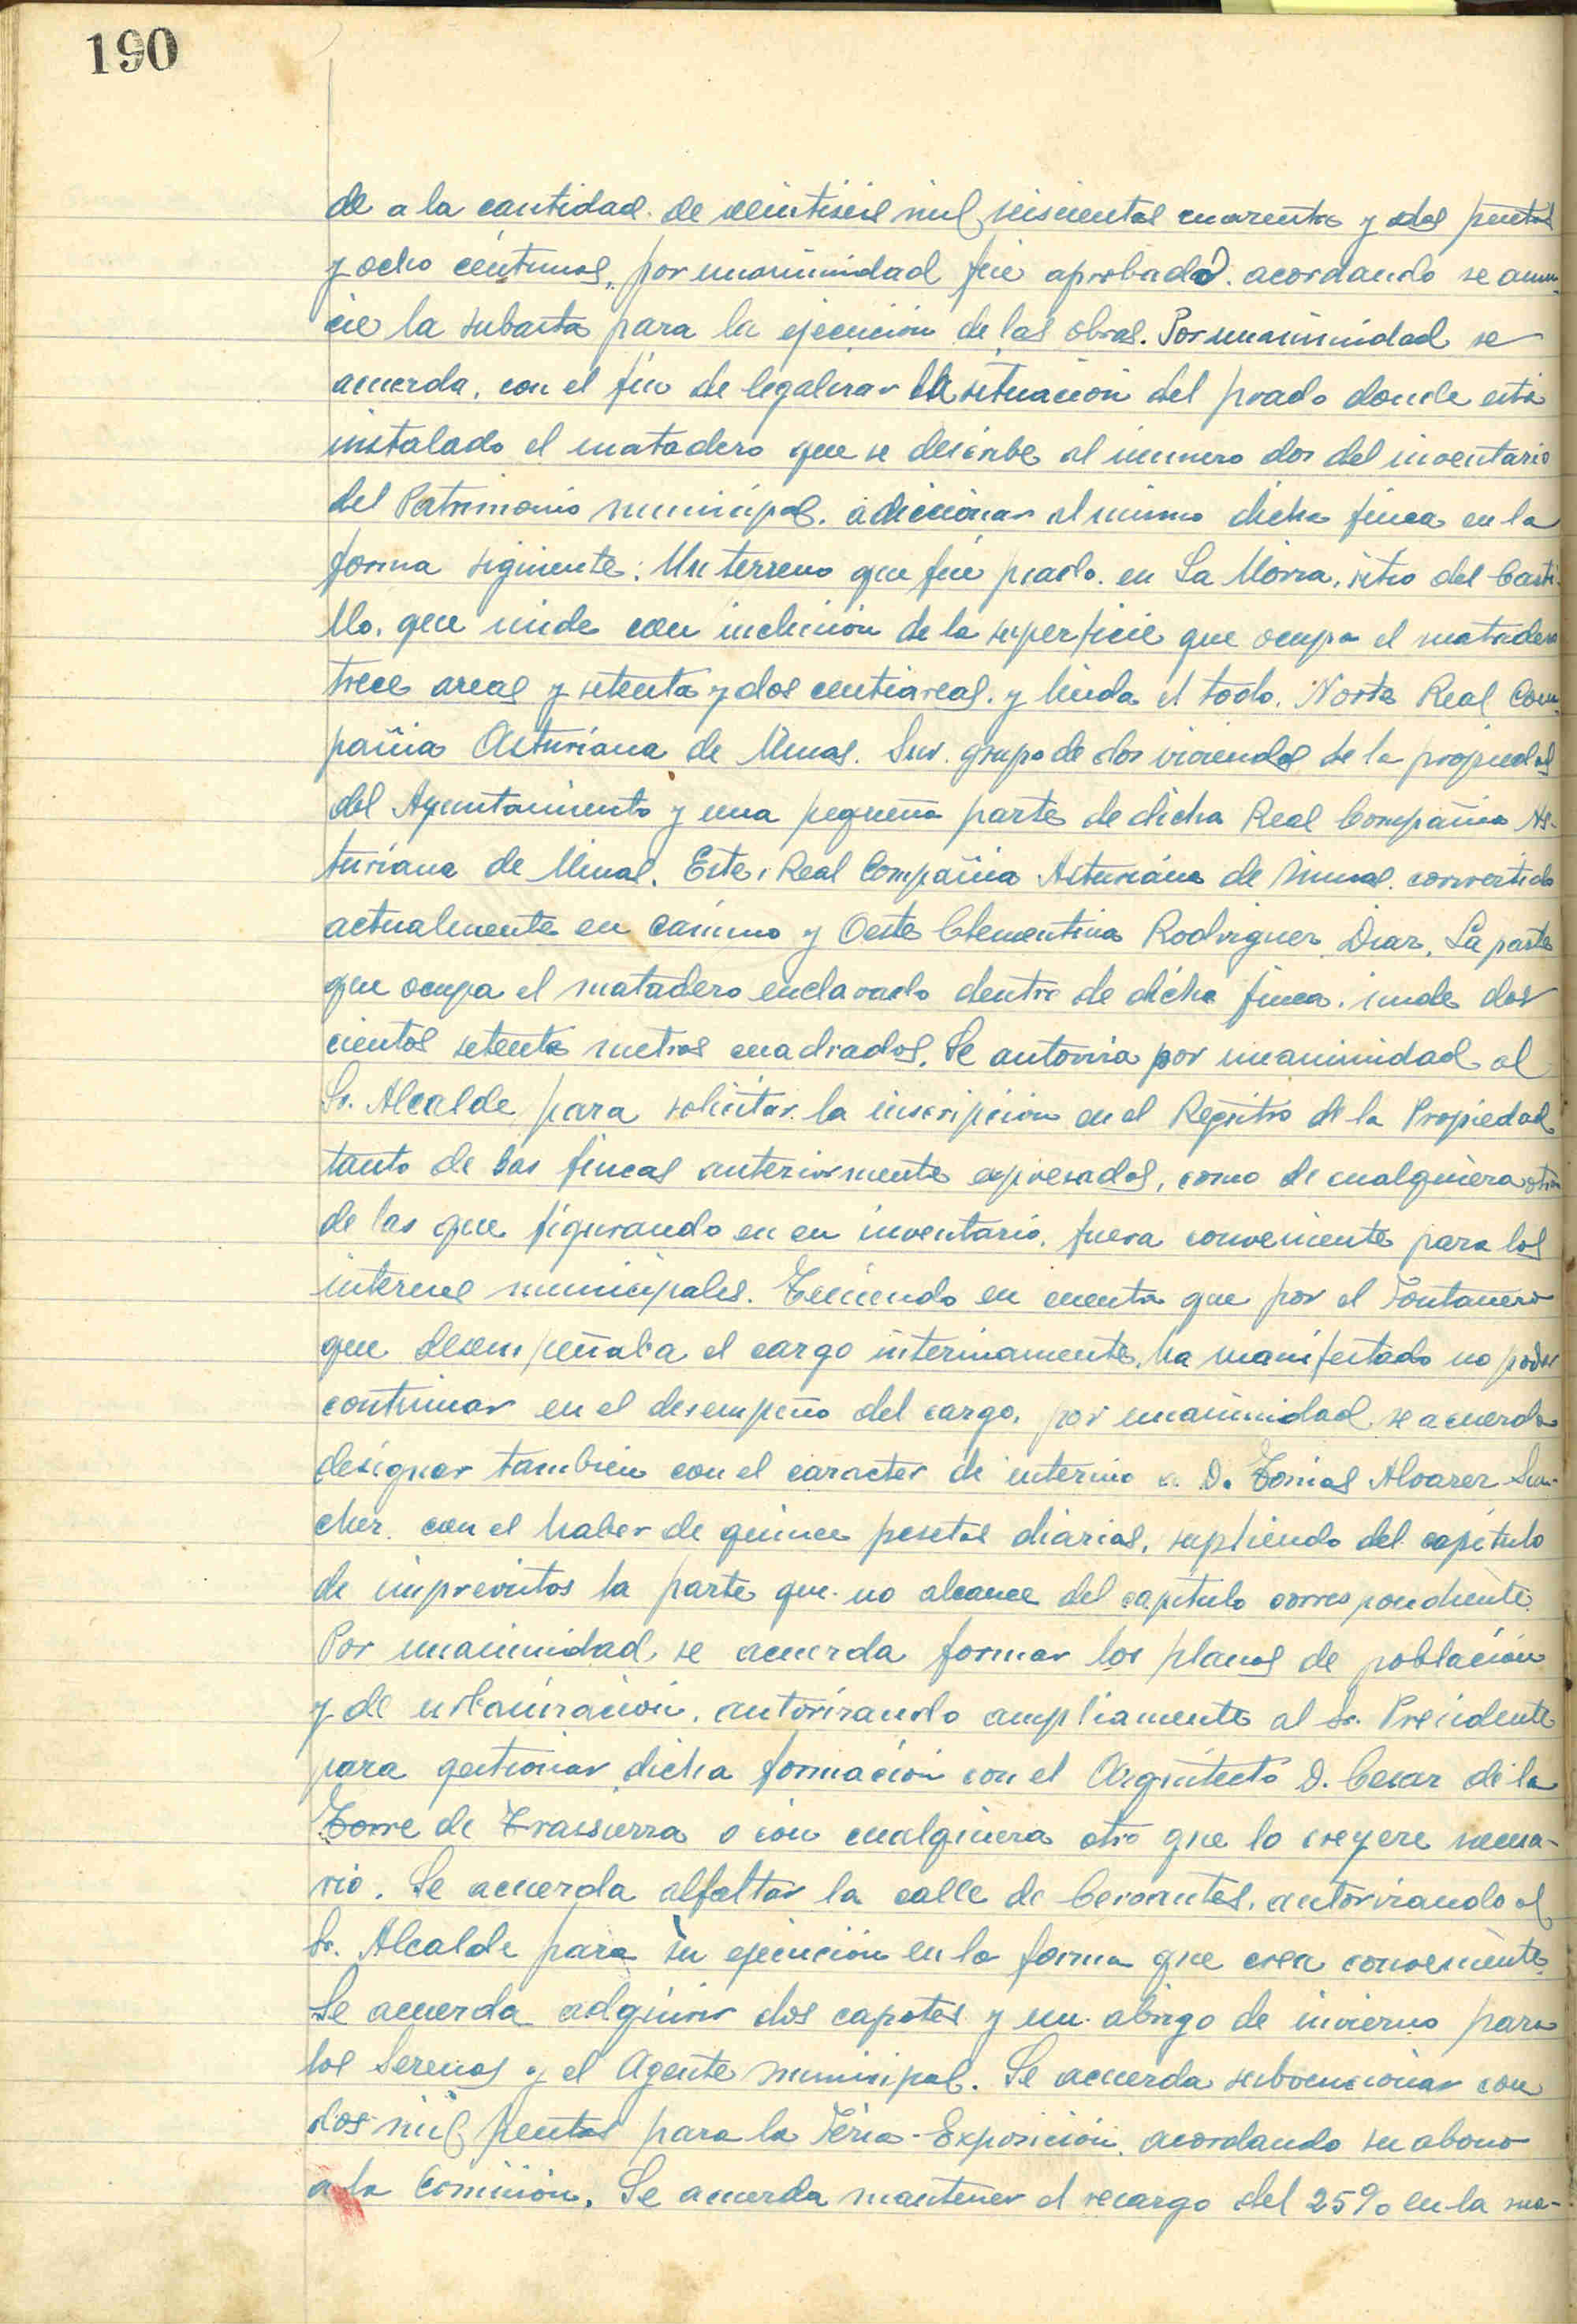 190
de a la cantidad de veintiseis mil seiscientas cuarenta y dos pesetas
y ocho céntimos, por unanimidad fué aprobado. acordando se anun-
cie la subasta para la ejecución de las obras. Por unanimidad se
acuerda, con el fin de legalizar la situación del prado donde está
instalado el matadero que se describe al número dos del inventario
del Patrimonio municipal, adiccionar al mismo dicha finca en la
forma siguiente: Un terreno que fué prado, en La sitio del Casti-
llo, que mide con inclusión de la superficie que ocupa el matadero
trece areas y setenta y dos centiareas, y linda el todo, Norte Real Com-
pañia Asturiana de Minas. Sur. grupo de dos viviendas de la propiedad
del Ayuntamiento y una pequeña parte de dicha Real Compañia As-
turiana de Minas. Este, Real Compañia Asturiana de Minas, convertido
actualmente en camino y Oeste Clementina Rodriguez Diaz. La parte
que ocupa el matadero enclavado dentro de dicha finca, mide dos
cientos setenta metros cuadrados. Se autoriza por unanimidad al
Sr. Alcalde para solicitar la inscripción en el Registro de la Propiedad
tanto de las fincas anteriormente expresadas, como de cualquiera otra
de las que figurando en en inventario, fuera conveniente para los
intereses municipales. Teniendo en cuenta que por el Fontanero
que desempeñaba el cargo interinamente, ha manifestado no poder
continuar en el desempeño del cargo, por unanimidad se acuerda
designar tambien con el caracter de interino a D. Tomas Alvarez San-
chez, con el haber de quince pesetas diarias, supliendo del capítulo
de imprevistos la parte que no alcance del capítulo correspondiente.
Por unanimidad, se acuerda formar los planos de población
y de urbanización, autorizando ampliamente al Sr. Presidente
para gestionar dicha formación con el Arquitecto D. Cesar de la
Torre de Trassierra o con cualquiera otro que lo creyere necesa-
rio. Se acuerda alfaltar la calle de Cervantes, autorizando al
Sr. Alcalde para su ejecución en la forma que crea conveniente.
Se acuerda adquirir dos capotes y un abrigo de invierno para
los Serenos y el Agente municipal. Se acuerda subvencionar con
dos mil pesetas para la Feria-Exposición, acordando su abono
a la Comisión. Se acuerda mantener el recargo del 25% en la ma-